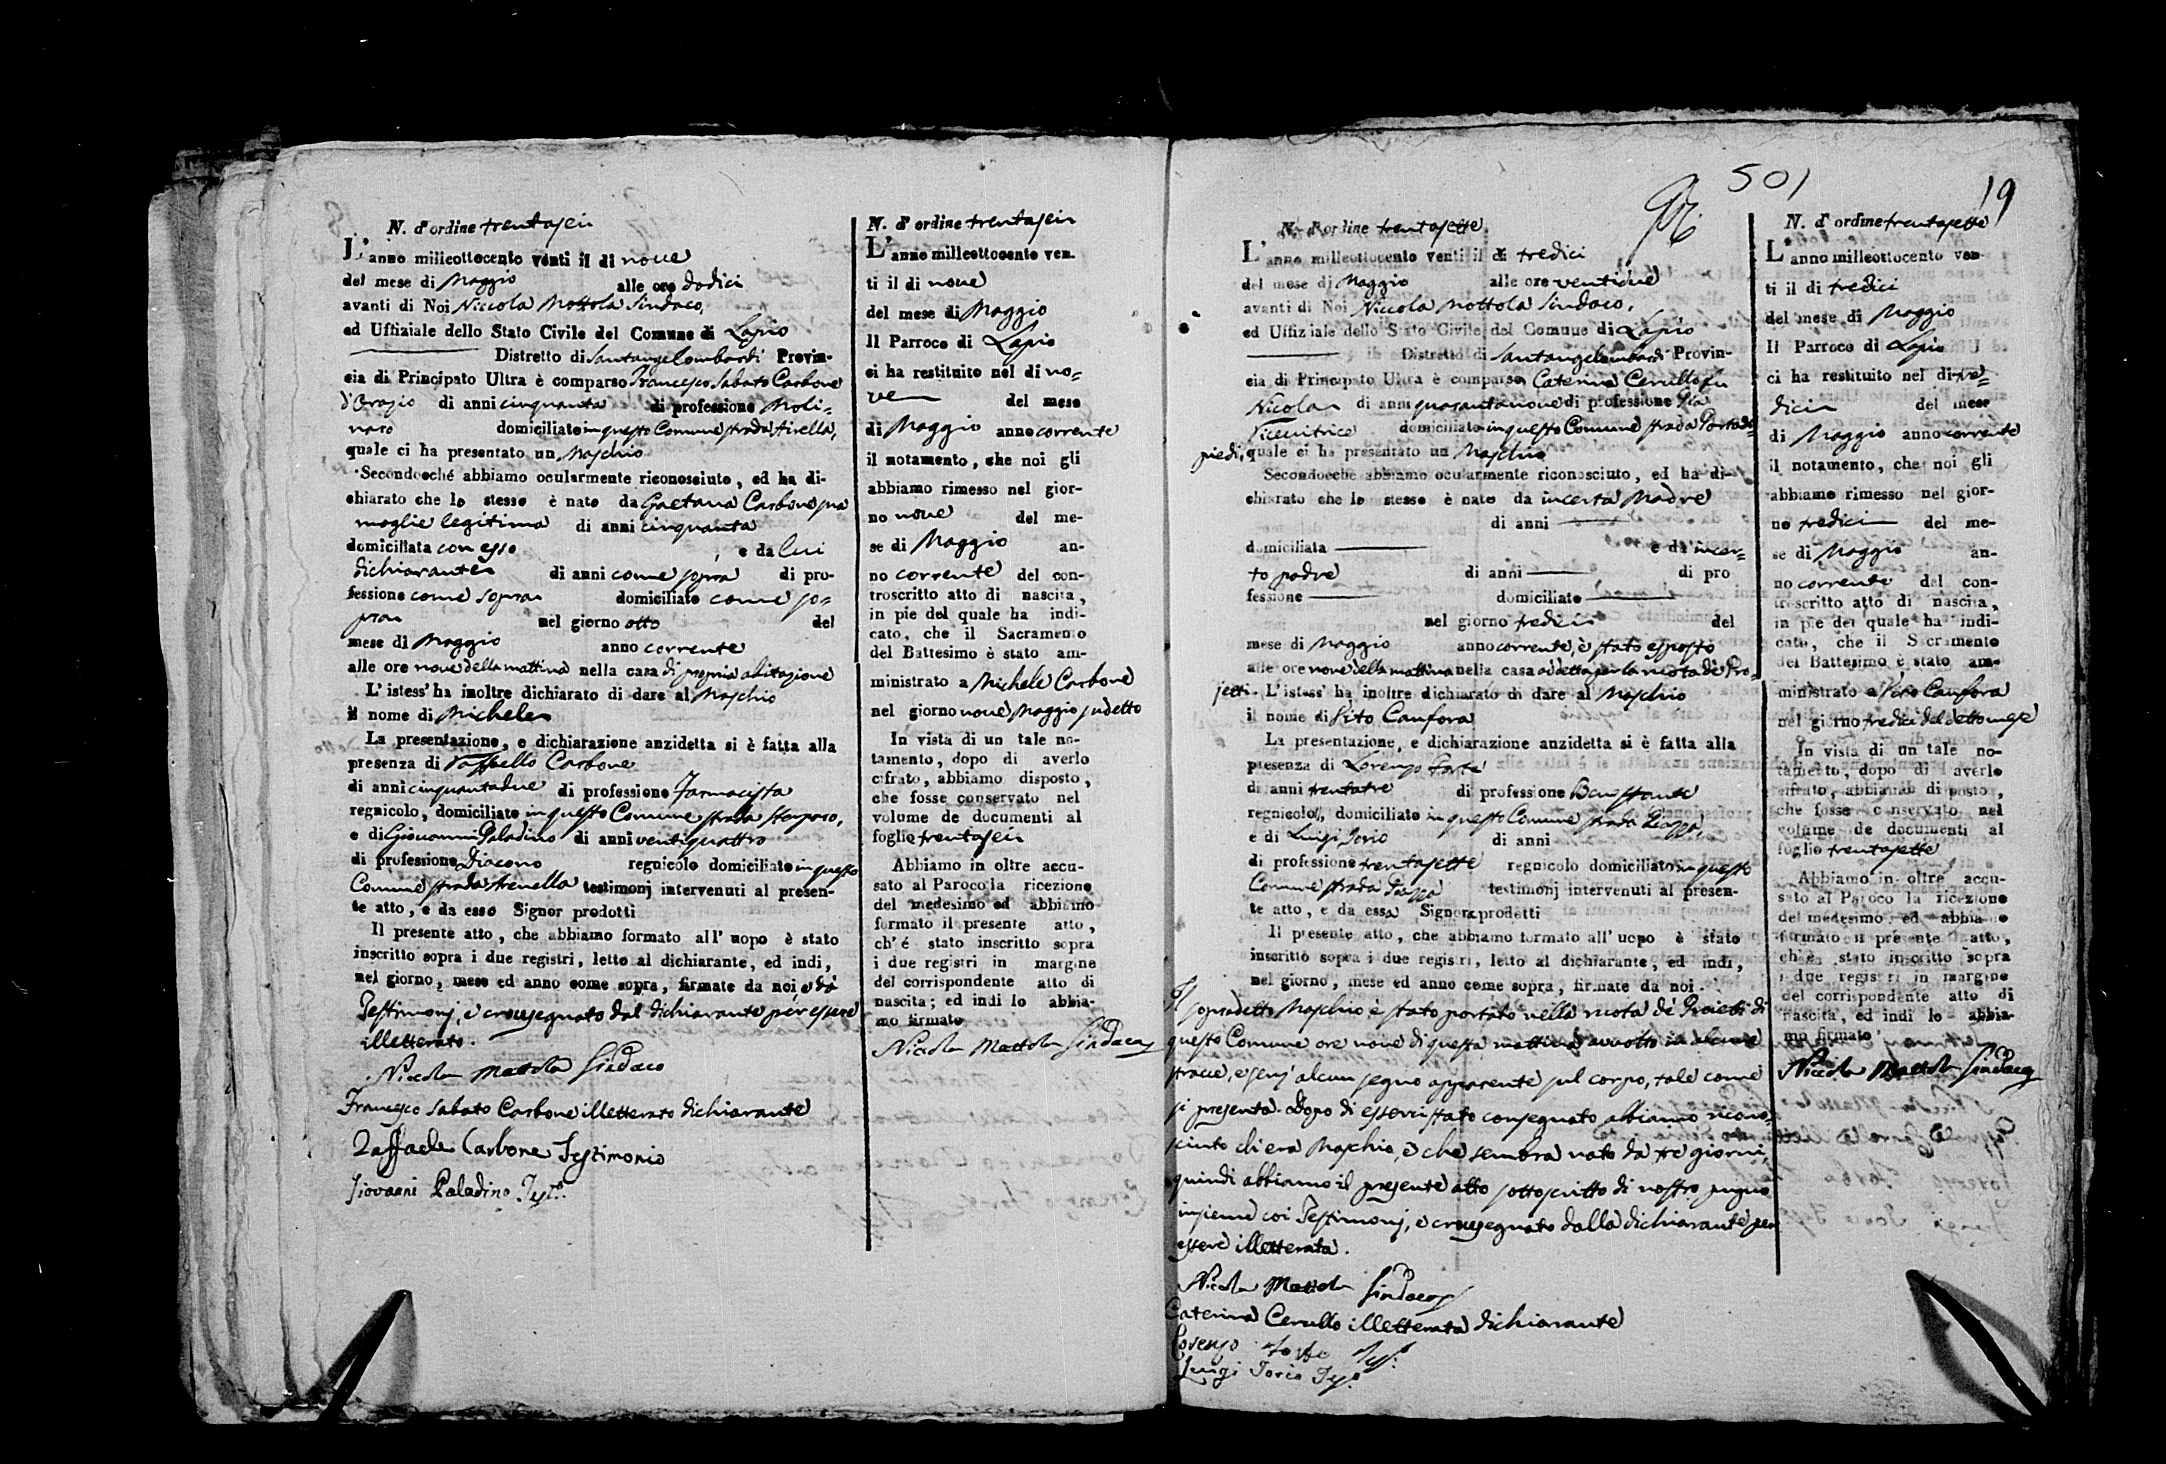 N. d'ordine trentasei
L'anno milleottocento venti il di nove
del mese di Maggio alle ore dodici
avanti di Noi Niccola Mottola Sindaco,
ed Uffiziale dello Stato Civile del Comune di Lapio
Distretto di Santangelombardi Provin-
cia di Principato Ultra è comparso Francesco Sabato Carbone
d'Orazio di anni cinquanta di professione Moli-
naro domiciliato in questo Comune strada
quale ci ha presentato un Maschio
Secondocché abbiamo ocularmente riconosciuto, ed ha di-
chiarato che lo stesso è nato da Gaetana Carbone sua
moglie legitima di anni cinquanta
domiciliata con esso e da lui
dichiarante di anni come sopra di pro-
fessione come sopra domiciliato come so-
pra nel giorno otto del
mese di Maggio anno corrente
alle ore nove della mattina nella casa di propria abitazione
L'istess' ha inoltre dichiarato di dare al Maschio
il nome di Michele
La presentazione, e dichiarazione anzidetta si è fatta alla
presenza di Raffaello Carbone
di anni cinquantadue di professione Farmacista
regnicolo, domiciliato in questo Comune strada
e di Giovanni Paladino di anni ventiquattro
di professione Diacono regnicolo domiciliato in questo
Comune strada testimonj intervenuti al presen-
te atto, e da esso Signor prodotti
Il presente atto, che abbiamo formato all' uopo è stato
inscritto sopra i due registri, letto al dichiarante, ed indi,
nel giorno, mese ed anno come sopra, firmato da noi, e dà
Testimonj, e crocesegnato dal dichiarante per essere
illetterato.
Niccola Mottola Sindaco
Francesco Sabato Carbone illetterato dichiarante
Raffaele Carbone Testimonio
Giovanni Paladino Test.º
N. d' ordine trentasei
L'anno milleottocento ven-
ti il di nove
del mese di Maggio
Il Parroco di Lapio
ci ha restituito nel di no-
ve del mese
di Maggio anno corrente
il notamento, che noi gli
abbiamo rimesso nel gior-
no nove del me-
se di Maggio an-
no corrente del con-
troscritto atto di nascita,
in pie del quale ha indi-
cato, che il Sacramento
del Battesimo è stato am-
ministrato a Michele Carbone
nel giorno nove Maggio sudetto
In vista di un tale no-
tamento, dopo di averlo
cifrato, abbiamo disposto,
che fosse conservato nel
volume de documenti al
foglio trentasei
Abbiamo in oltre accu-
sato al Paroco la ricezione
del medesimo ed abbiamo
formato il presente atto,
ch' é stato inscritto sopra
i due registri in margine
del corrispondente atto di
nascita; ed indi lo abbia-
mo firmato
Niccola Mottola Sindaco
501
19
N. d'ordine trentasette
L'anno milleottocento venti il di tredici
del mese di Maggio alle ore ventidue
avanti di Noi Niccola Mottola Sindaco,
ed Uffiziale dello Stato Civile del Comune di Lapio
Distretto di Santangelombardi Provin-
cia di Principato Ultra è comparsa Caterina Cerullo fu
Nicola di anni quarantanove di professione Pia
Ricevitrice domiciliata in questo Comune strada Porta di
piedi, quale ci ha presentato un Maschio
Secondocche abbiamo ocularmente riconosciuto, ed ha di-
chiarato che lo stesso è nato da incerta Madre
di anni
domiciliata e da incer-
to padre di anni di pro
fessione domiciliato
nel giorno tredici del
mese di Maggio anno corrente, è stato esposto
alle ore nove della mattina nella casa addetta per la ruota de' Pro-
jetti. L'istess' ha inoltre dichiarato di dare al Maschio
il nome di Vito Canfora
La presentazione, e dichiarazione anzidetta si è fatta alla
presenza di Lorenzo Forte
di anni trentatre di professione Benestante
regnicolo, domiciliato in questo Comune strada Piazza,
e di Luigi Iorio di anni
di professione trentasette regnicolo domiciliato in questo
Comune strada Piazza testimonj intervenuti al presen-
te atto, e da essa Signora prodotti
Il presente atto, che abbiamo formato all' uopo è stato
inscritto sopra i due registri, letto al dichiarante, ed indi,
nel giorno, mese ed anno come sopra, firmate da noi.
Il sopradetto Maschio è stato portato nella ruota de' Proietti di
questo Comune ore nove di questa mattina avvolto in alcune
stracce, e senz' alcun segno apparente sul corpo, tale come
si presenta. Dopo di esserci stato consegnato abbiamo ricono-
sciuto ch'era Maschio, e che sembra nato da tre giorni,
quindi abbiamo il presente atto sottoscritto di nostro pugno
insieme coi Testimonj, e crocesegnato dalla dichiarante per
essere illetterata.
Niccola Mottola Sindaco
Caterina Cerullo illetterata dichiarante
Lorenzo Forte Tes.º
Luigi Iorio Tes.º
N. d' ordine trentasette
L'anno milleottocento ven-
ti il di tredici
del mese di Maggio
Il Parroco di Lapio
ci ha restituito nel di tre-
dici del mese
di Maggio anno corrente
il notamento, che noi gli
abbiamo rimesso nel gior-
no tredici del me-
se di Maggio an-
no corrente del con-
troscritto atto di nascita,
in pie del quale ha indi-
cato, che il Sacramento
del Battesimo è stato am-
ministrato a Vito Canfora
nel giorno tredici del detto mese
In vista di un tale no-
tamento, dopo di averlo
cifrato, abbiamo disposto,
che fosse conservato nel
volume de documenti al
foglio trentasette
Abbiamo in oltre accu-
sato al Paroco la ricezione
del medesimo, ed abbiamo
formato il presente atto,
ch' è stato inscritto sopra
i due registri in margine
del corrispondente atto di
nascita, ed indi lo abbia-
mo firmato
Niccola Mottola Sindaco